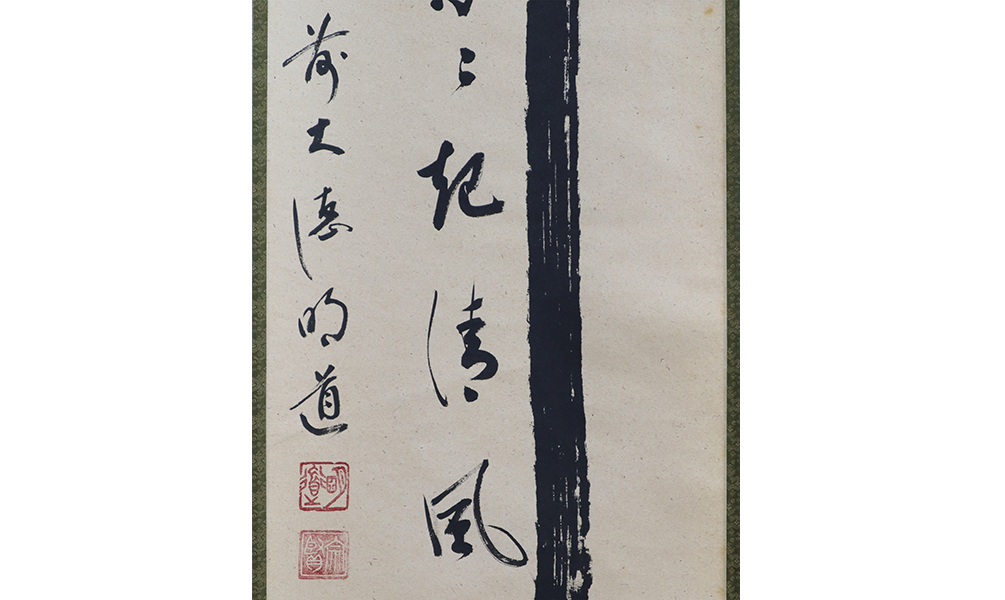 々起清風
前大徳明道
明道